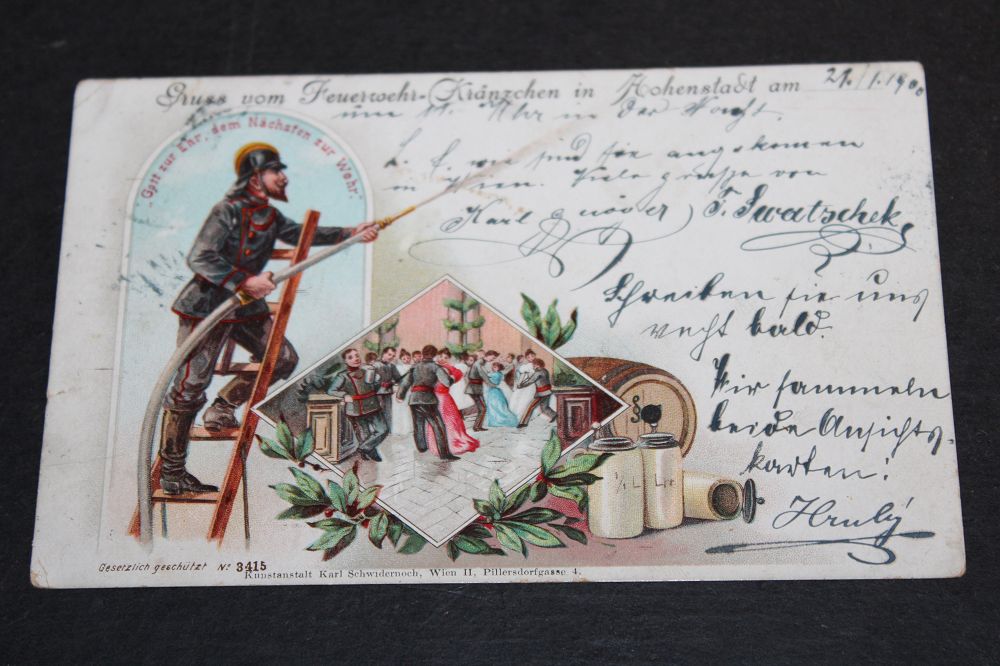 Gruss vom Feuerwehr-Kränzchen in Hohenstadt am 21./1.1900
um 11. Uhr in der Nacht.
"Gott zur Ehr, dem Nächsten zur Wehr"
L. F. wie sind sie angekomen
in Wien. Viele grüße von
Karl F. Swatschek
Schreiben sie uns
recht bald.
Wir sammeln
beide Ansichts-
karten!
Hrubý
1/2 L
Gesetzlich geschützt No. 3415
Kunstanstalt Karl Schwidernoch, Wien II, Pillersdorfgasse 4.